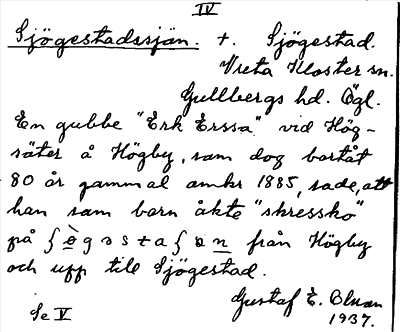 IV
Sjögestadssjön. +. Sjögestad.
Vreta Kloster sn.
Gullbergs hd. Ögl.
En gubbe "Erk Erssa" vid Hög-
säter å Högby, som dog bortåt
80 år gammal omkr 1885, sade, att
han som barn åkte "skressko"
på ʃ ö̀ g ɘ s t a ʃ ɵ n från Högby
och upp till Sjögestad.
Gustaf E.
1937.
Se V